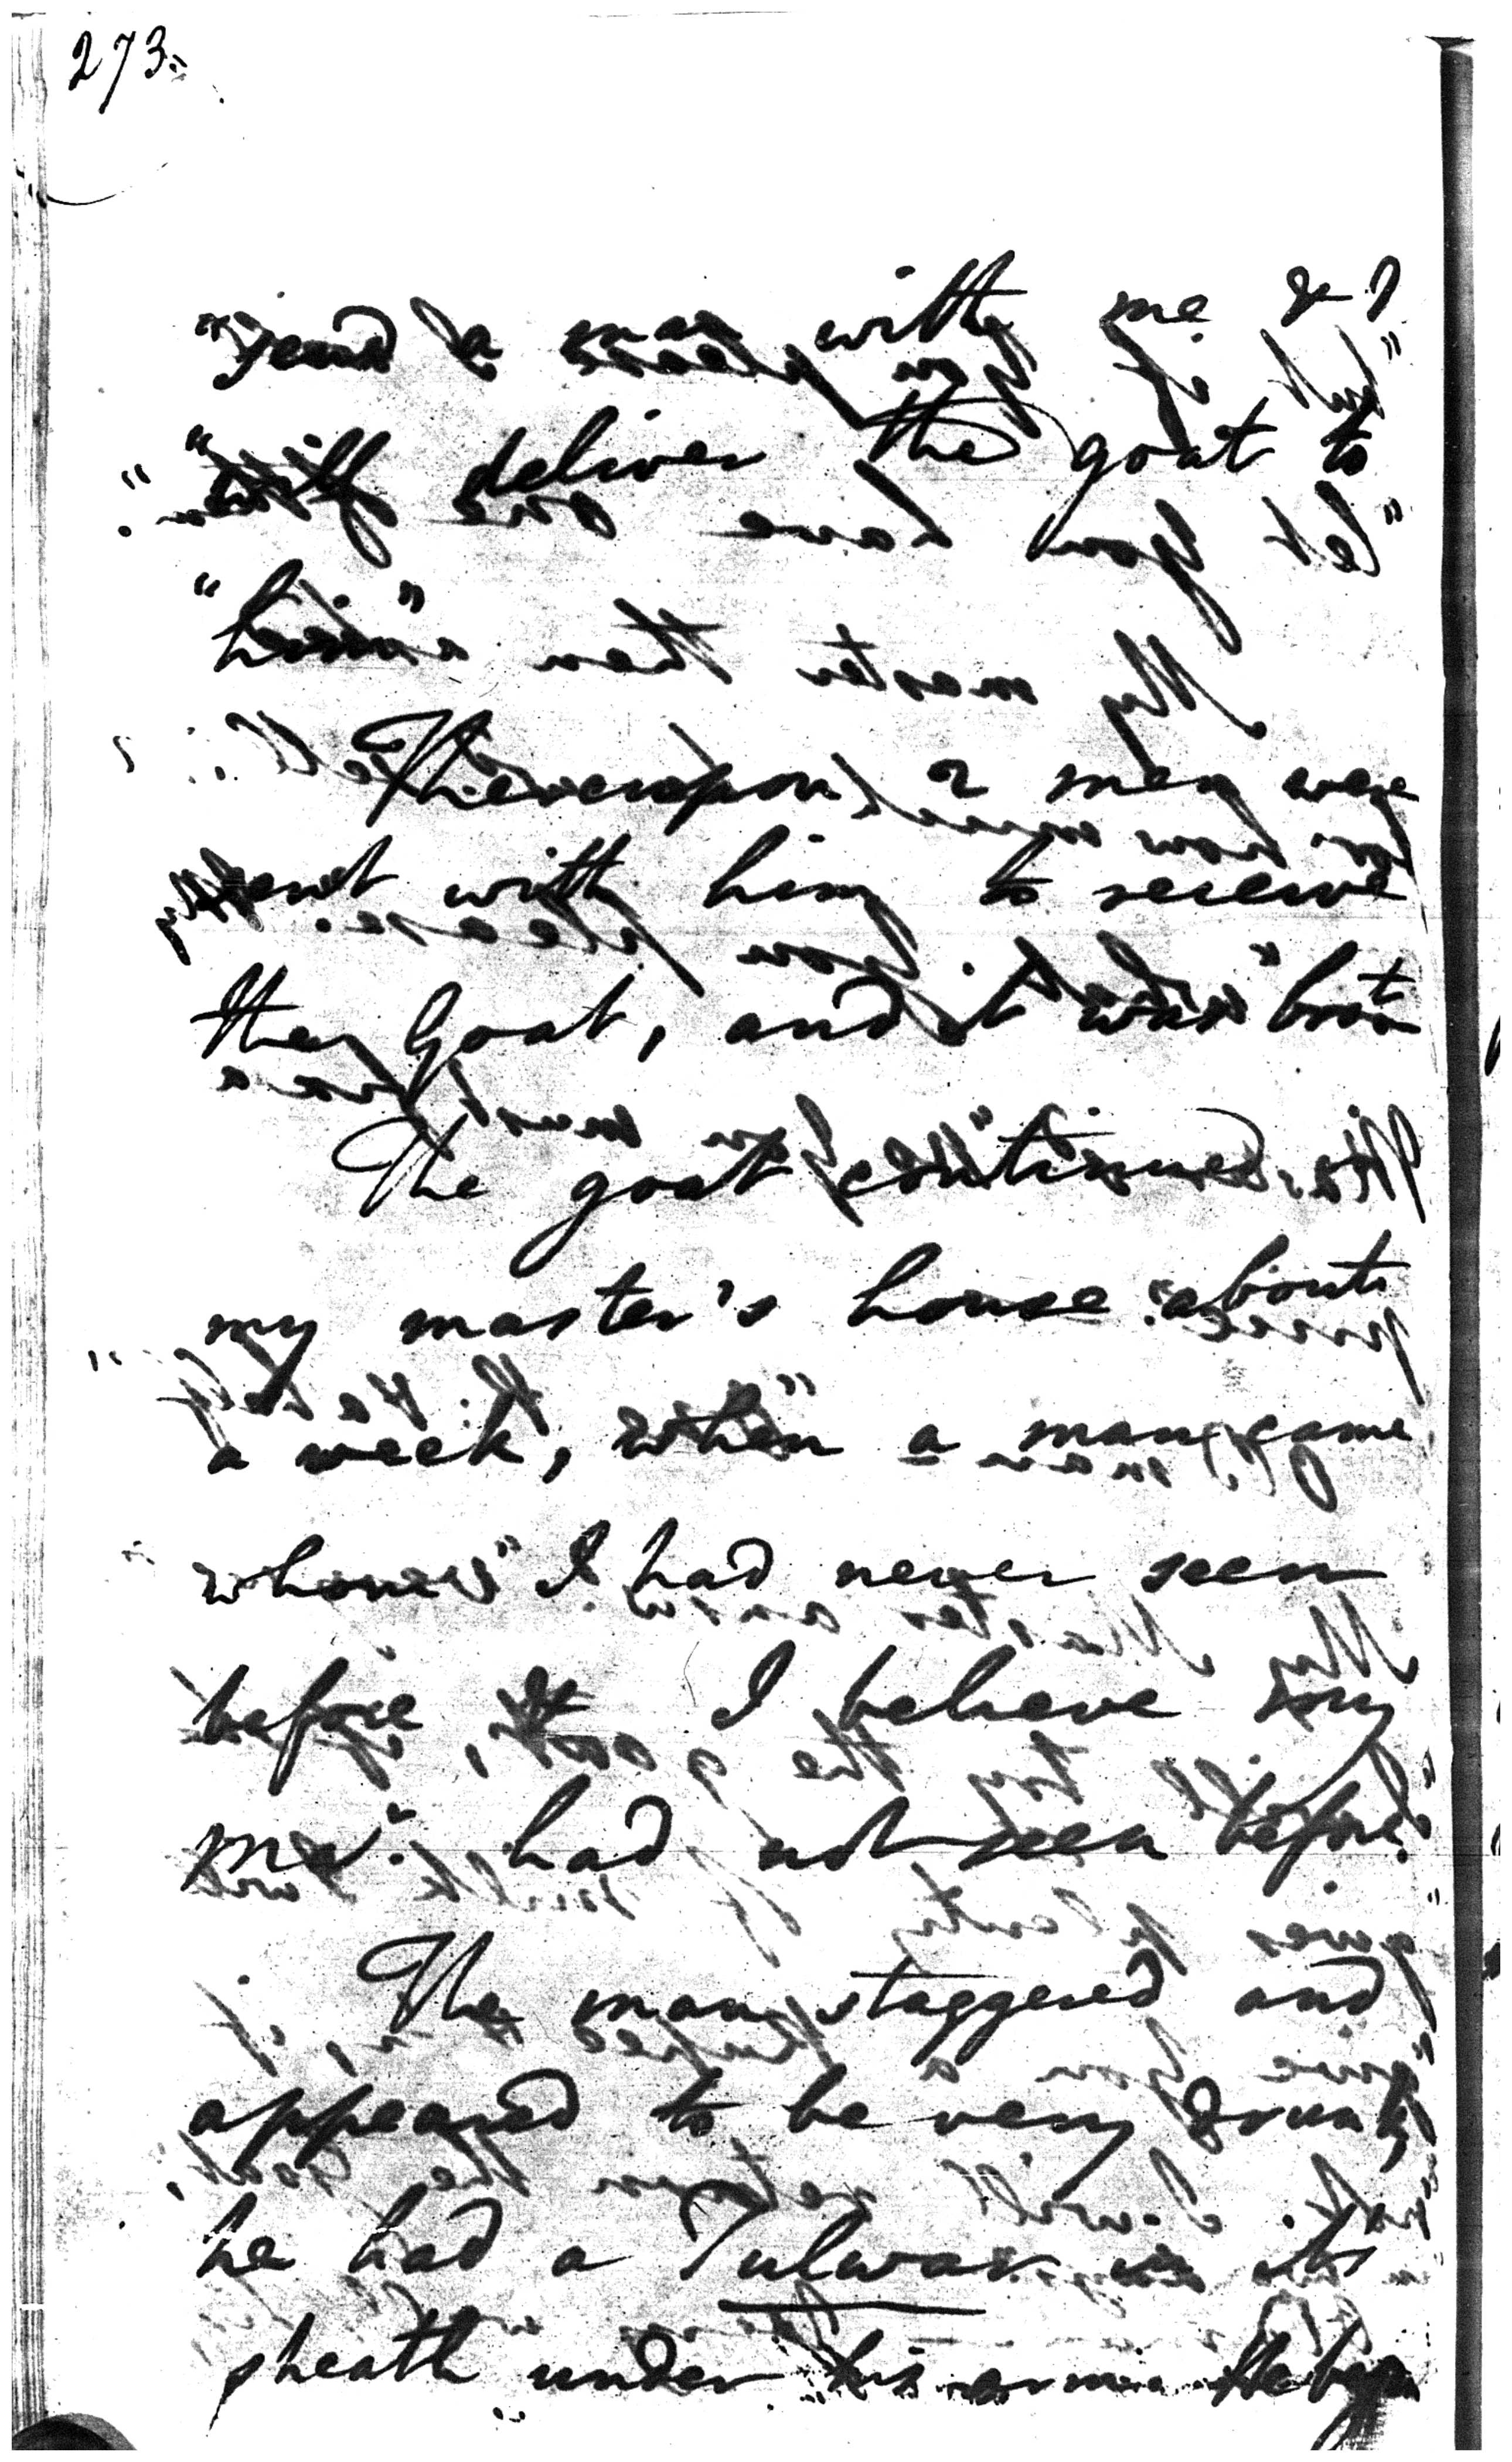 273.
"send a man with me & I
"will deliver the goat to
"him"
Thereupon 2 men were
sent with him to receive
the Goat, and it was brot
The goat continued
my master's house about
a week, when a man came
whom I had never seen
before, I believe my
mr. had not seen before
The man staggered and
appeared to be very drunk,
he had a Tulwar in its
sheath under his arm He